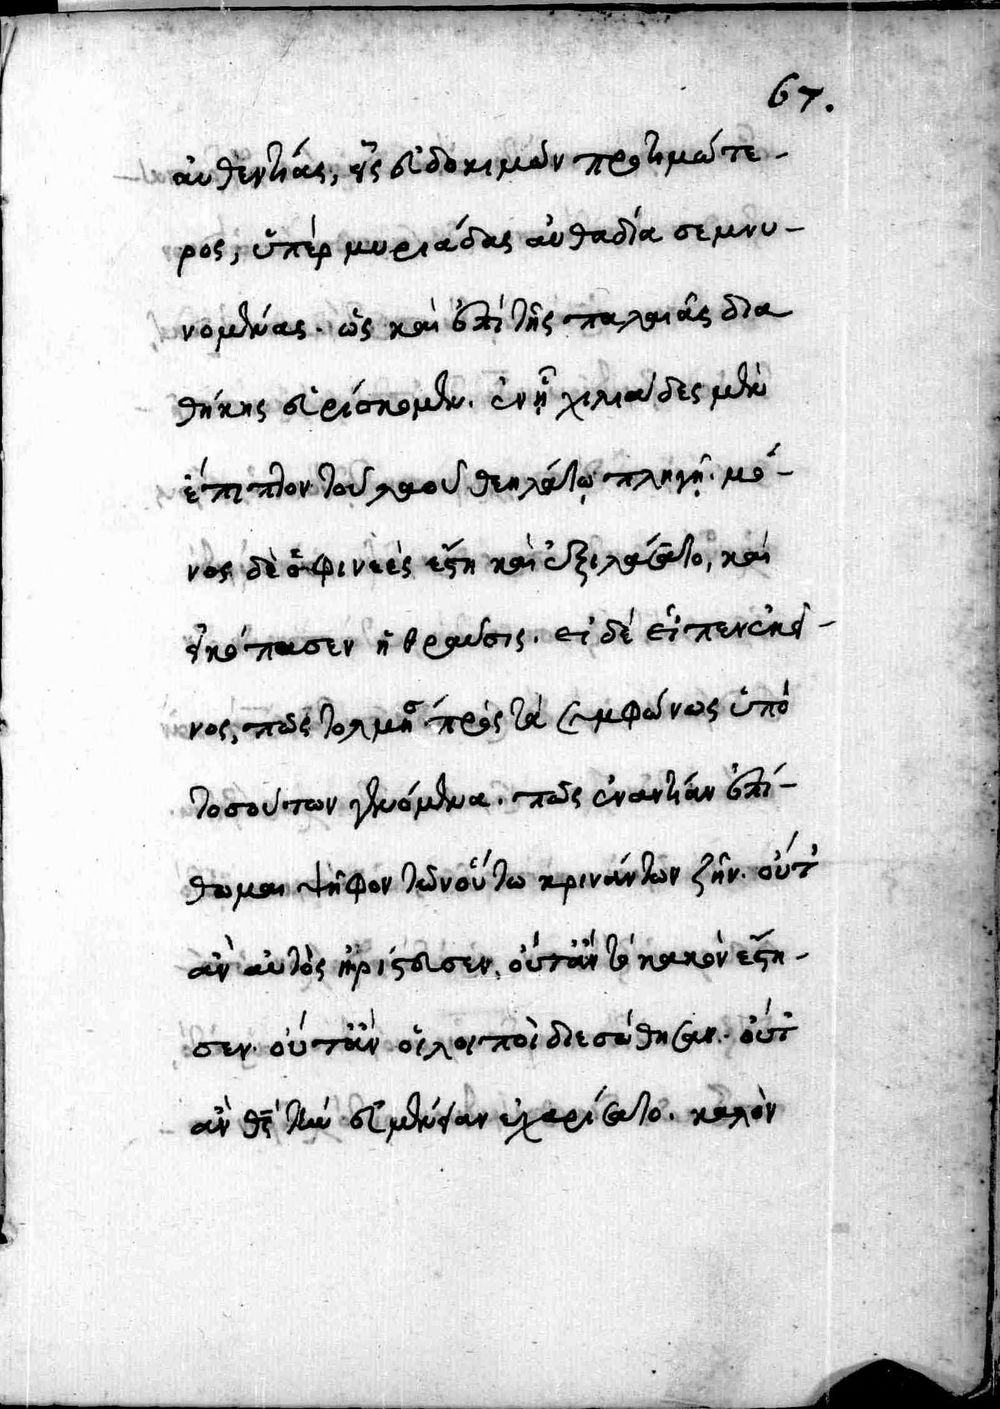 67.
αὐθεντίας, εἷς εὐδοκιμῶν προτιμώτε-
ρος, ὑπὲρ μυριάδας αὐθαδία σεμνυ-
νομένας. ὡς καὶ ἐπὶ τῆς παλαιᾶς δια
θήκης εὑρίσκομεν. ἐν ᾗ χιλιάδες μὲν
ἔπιπτον τοῦ λαοῦ θεηλάτῳ πληγῇ. μό-
νος δὲ ὁ φινεὲς ἔστη καὶ ἐξιλάσατο, καὶ
ἐκόπασεν ἡ θραῦσις. εἰ δὲ εἶπεν ἐκεῖ-
νος, πῶς τολμήσω πρὸς τὰ συμφώνως ὑπὸ
τοσούτων γενόμενα. πῶς ἐναντίαν ἐπί-
θωμαι ψῆφον τῶν οὕτω κρινάντων ζῆν. οὔτ'
ἂν αὐτὸς ἠρίστευσεν, οὔτ' ἂν τὸ κακὸν ἔστη-
σεν. οὔτ' ἂν οἱ λοιποὶ διεσώθησαν. οὔτ'
ἂν θς τὴν εὐμένειαν ἐχαρίσατο. καλὸν